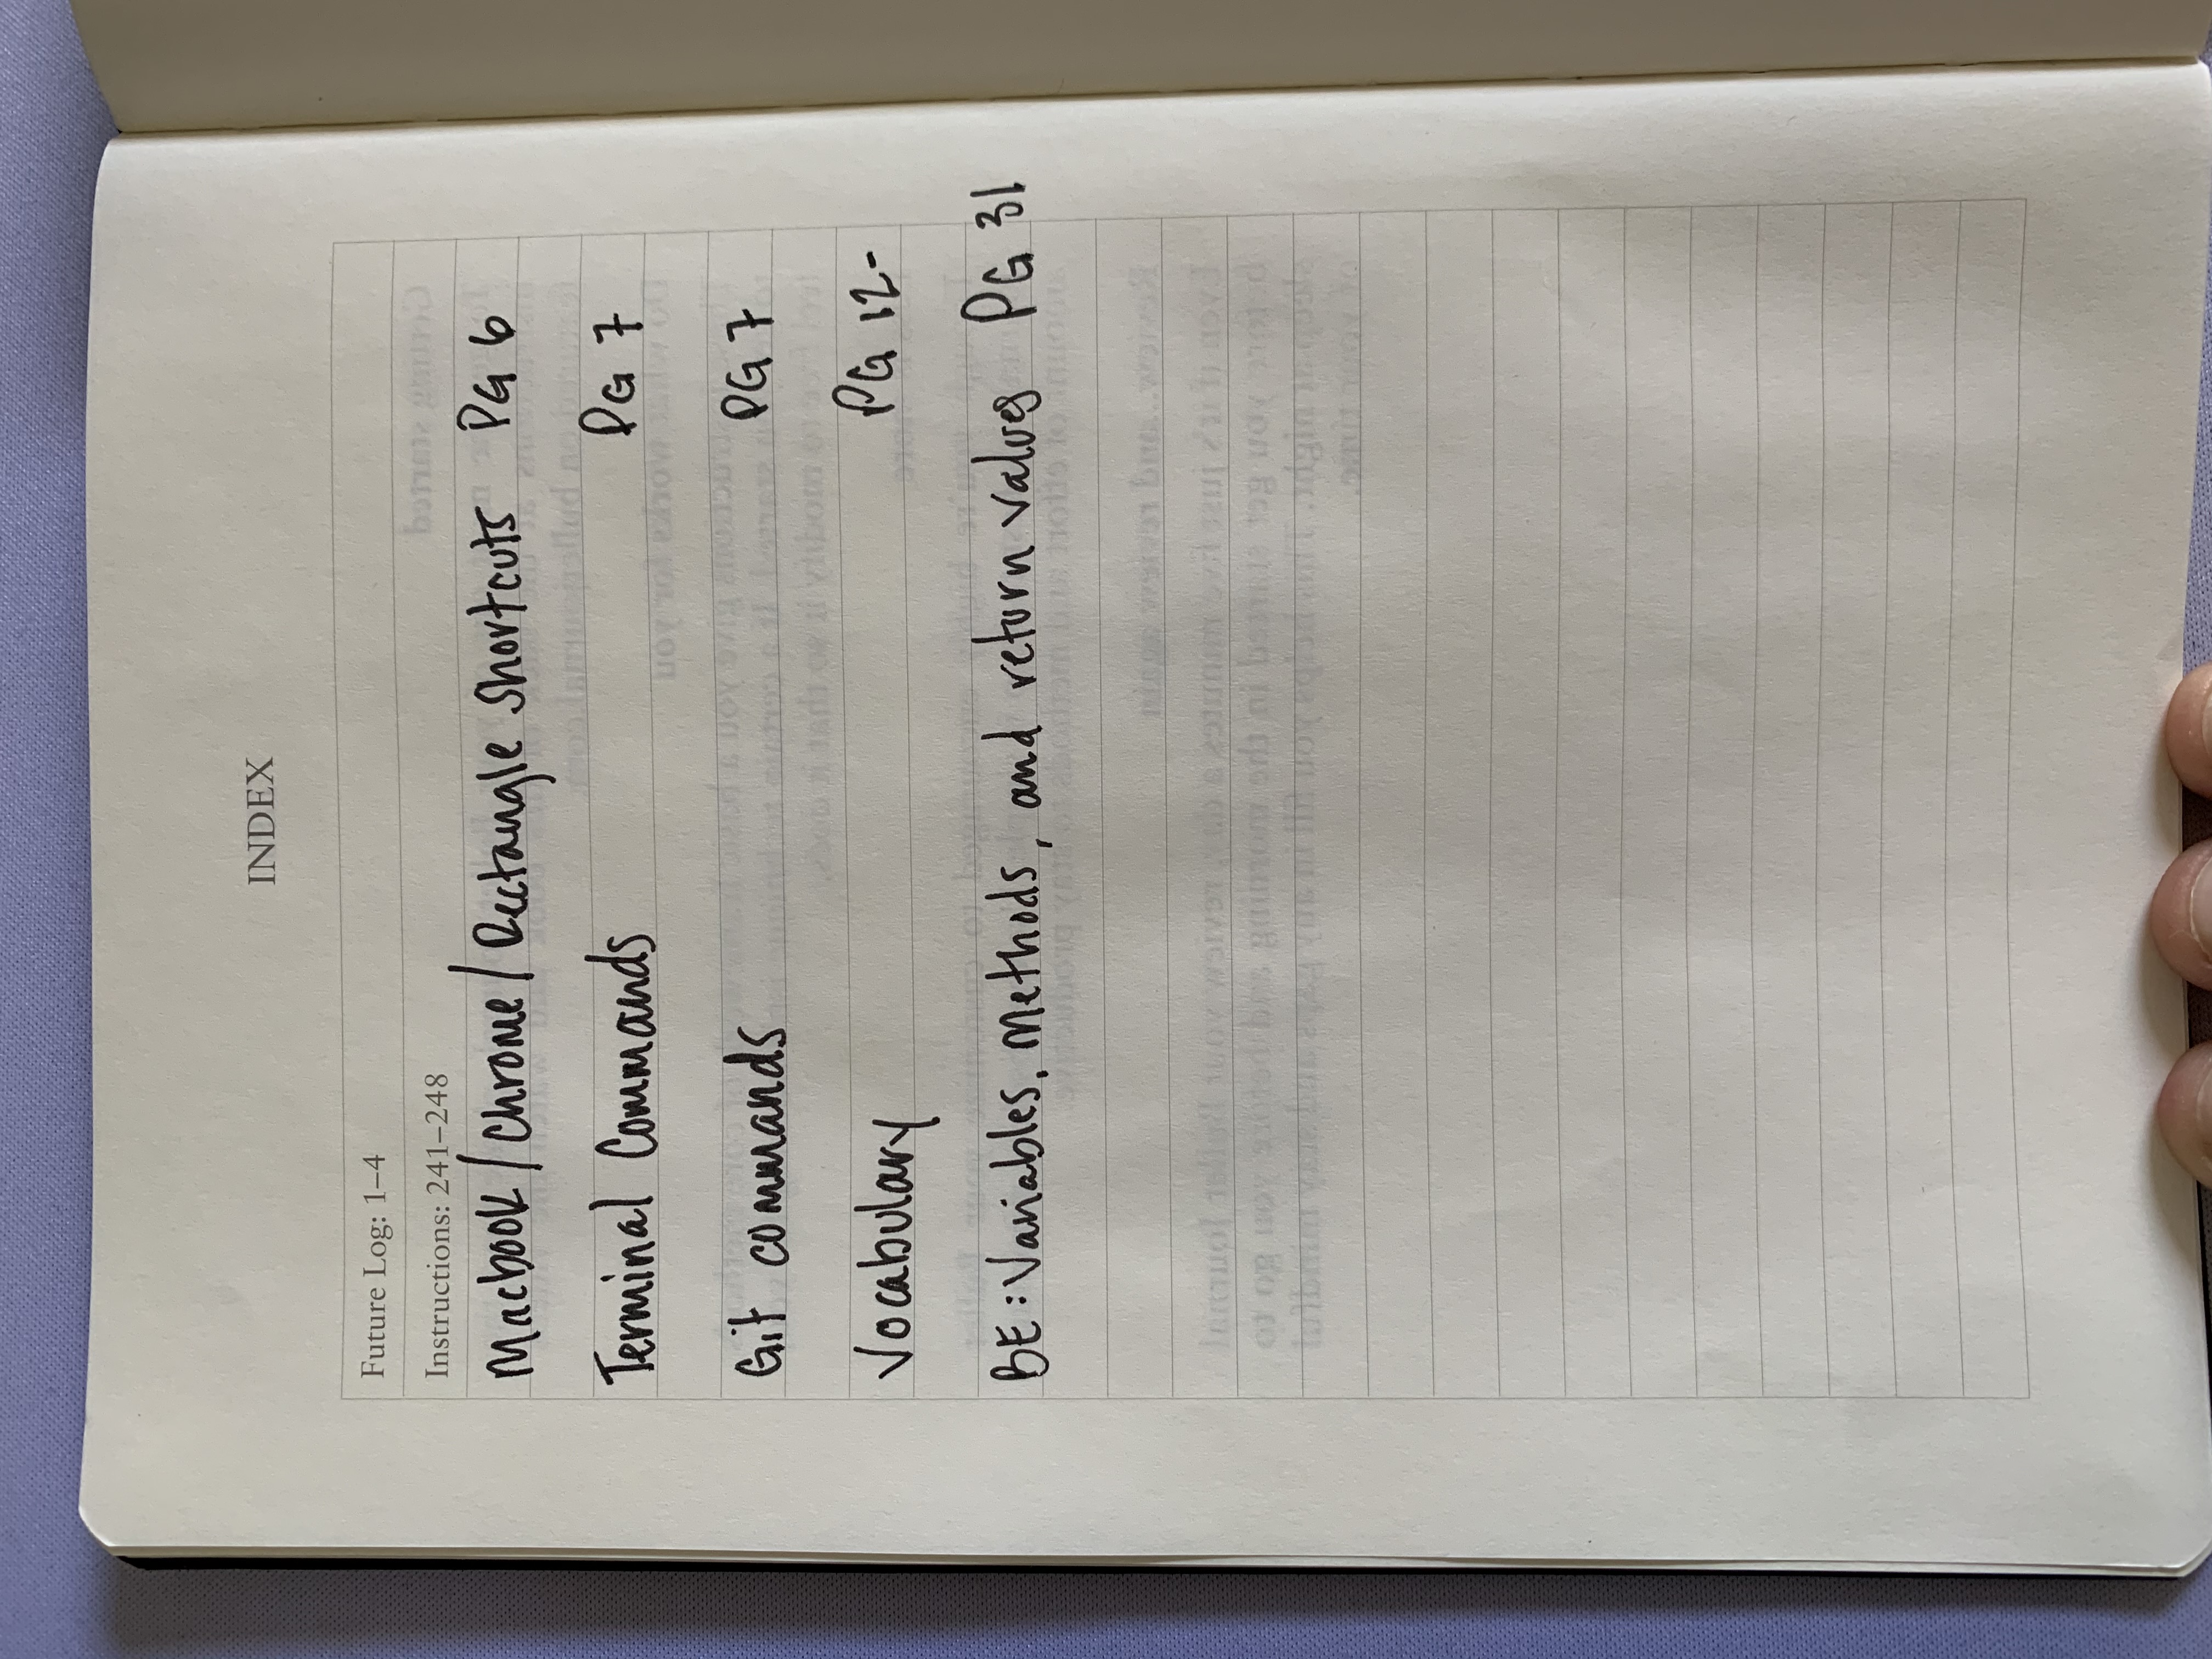 INDEX
Future Log: 1–4
Instructions: 241–248
Macbook/Chrome/Rectangle Shortcuts PG 6
Terminal Commands PG 7
Git commands PG 7
Vocabulary PG 12-
BE: Variables, Methods, and return values PG 31